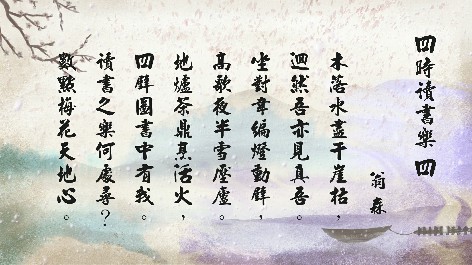 四時讀書樂 四
翁森
木落水盡千崖枯，
迴然吾亦見真吾。
坐對韋編燈動壁，
高歌夜半雪壓廬。
地爐茶鼎烹活火，
四壁圖書中有我。
讀書之樂何處尋？
數點梅花天地心。